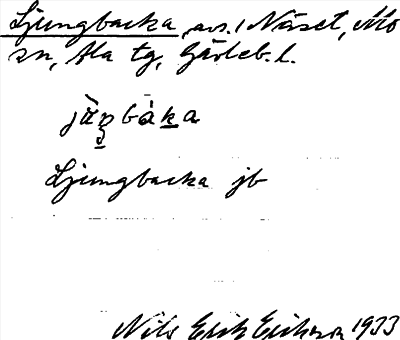 Ljungbacka, avs. / Näset, Mo
sn, Ala tg, Gävleb. l.
Ljungbacka jb
Nils Erik Erikson 1933